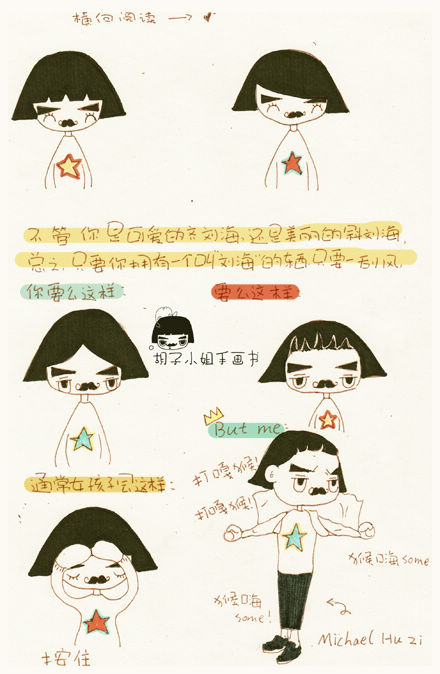 横向阅读 →
不管你是可爱的齐刘海、还是美丽的斜刘海,
总之,只要你拥有一个叫“刘海”的东西,只要一刮风,
你要么这样:
要么这样:
胡子小姐手画书
But me:
通常女孩子会这样:
打嘎猴!
打嘎猴!
猴嗨some
猴嗨
some!
Michael Hu zi
按住